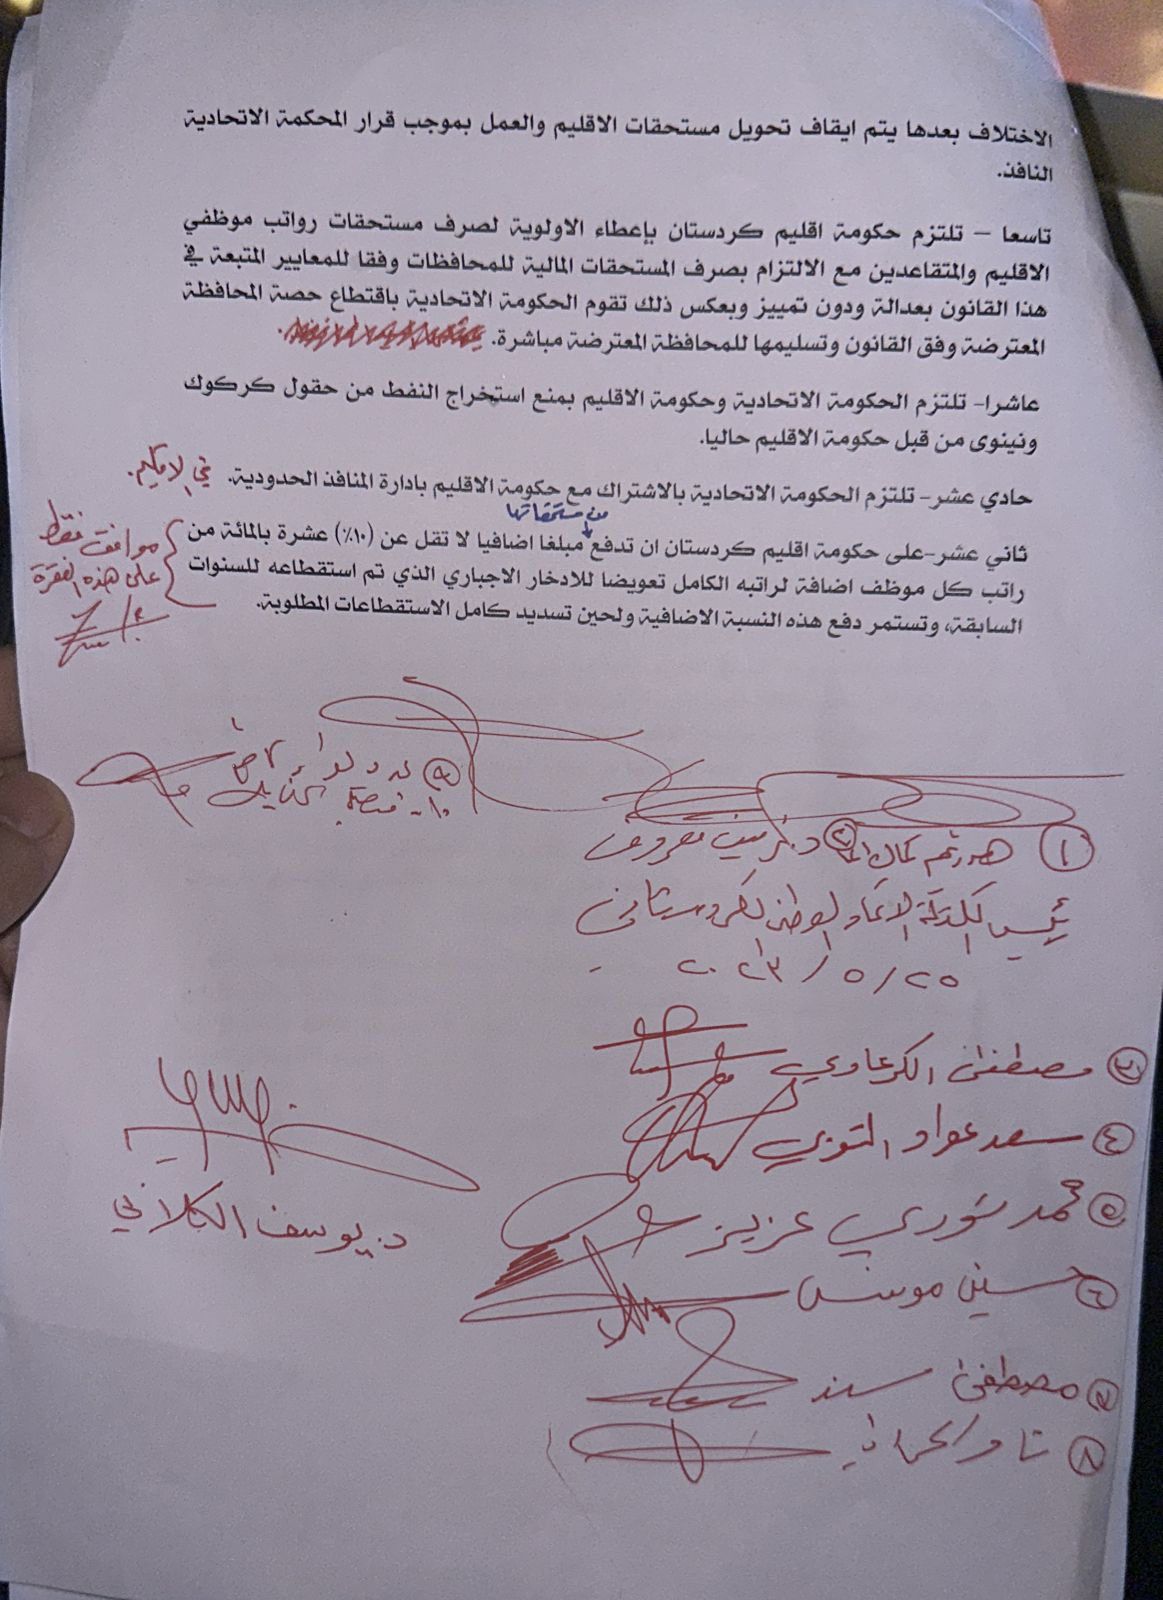 الاختلاف بعدها يتم ايقاف تحويل مستحقات الاقليم والعمل بموجب قرار المحكمة الاتحادية
النافذ.
تاسعا – تلتزم حكومة اقليم كردستان بإعطاء الاولوية لصرف مستحقات رواتب موظفي
الاقليم والمتقاعدين مع الالتزام بصرف المستحقات المالية للمحافظات وفقا للمعايير المتبعة في
هذا القانون بعدالة ودون تمييز وبعكس ذلك تقوم الحكومة الاتحادية باقتطاع حصة المحافظة
المعترضة وفق القانون وتسليمها للمحافظة المعترضة مباشرة.
عاشرا- تلتزم الحكومة الاتحادية وحكومة الاقليم بمنع استخراج النفط من حقول كركوك
ونينوى من قبل حكومة الاقليم حاليا.
حادي عشر- تلتزم الحكومة الاتحادية بالاشتراك مع حكومة الاقليم بادارة المنافذ الحدودية. في الاقليم.
من مستحقاتها
ثاني عشر-على حكومة اقليم كردستان ان تدفع مبلغا اضافيا لا تقل عن (١٠٪) عشرة بالمائة من
راتب كل موظف اضافة لراتبه الكامل تعويضا للادخار الاجباري الذي تم استقطاعه للسنوات
السابقة، وتستمر دفع هذه النسبة الاضافية ولحين تسديد كامل الاستقطاعات المطلوبة.
موافق فقط
على هذه الفقرة
٩
١
٢
رئيس الكتلة الاتحاد الوطني الكردستاني
٢٥/٥/٢٠٢٣
٣ مصطفى الكرعاوي
٤ سعد عواد التوبي
٥ محمد نوري عزيز
٦ حسين مونس
٧ مصطفى سند
٨
د. يوسف الكلابي